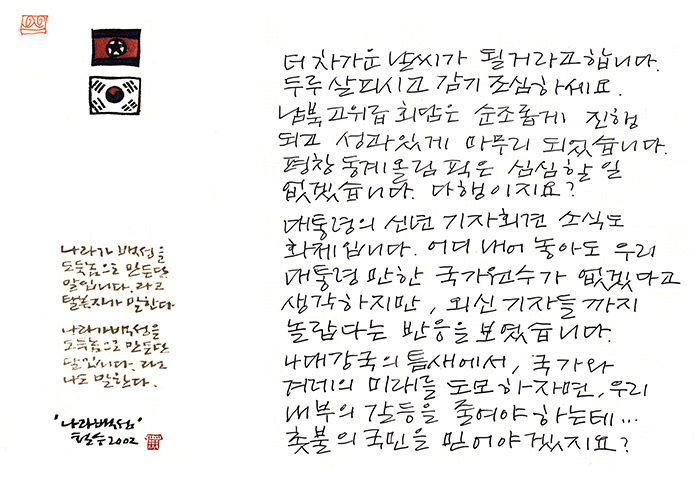 더 차가운 날씨가 될거라고합니다.
두루 살피시고 감기 조심하세요.
남북고위급 회담은 순조롭게 진행
되고 성과있게 마무리 되었습니다.
평창동계올림픽은 심심할 일
없겠습니다. 다행이지요?
대통령의 신년 기자회견 소식도
화제입니다. 어디 내어 놓아도 우리
대통령만한 국가원수가 없겠다고
생각하지만, 외신 기자들까지
놀랍다는 반응을 보였습니다.
4대강국의 틈새에서, 국가와
겨레의 미래를 도모하자면, 우리
내부의 갈등을 줄여야 하는데...
촛불의 국민을 믿어야겠지요?
나라가 백성을
도둑놈으로 만든단
말입니다. 라고
탈북자가 말한다
나라가 백성을
도둑놈으로 만든단
말입니다. 라고
나도 말한다.
"나라백성"
철수2002